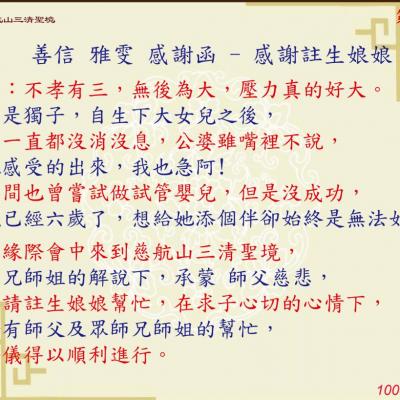 航山三清聖境
善信 雅雯 感謝函 - 感謝註生娘娘
：不孝有三，無後為大，壓力真的好大。
是獨子，自生下大女兒之後，
一直都沒消沒息，公婆雖嘴裡不說，
感受的出來，我也急阿!
間也曾嘗試做試管嬰兒，但是沒成功，
已經六歲了，想給她添個伴卻始終是無法如
緣際會中來到慈航山三清聖境，
兄師姐的解說下，承蒙 師父慈悲，
請註生娘娘幫忙，在求子心切的心情下，
有師父及眾師兄師姐的幫忙，
儀得以順利進行。
100